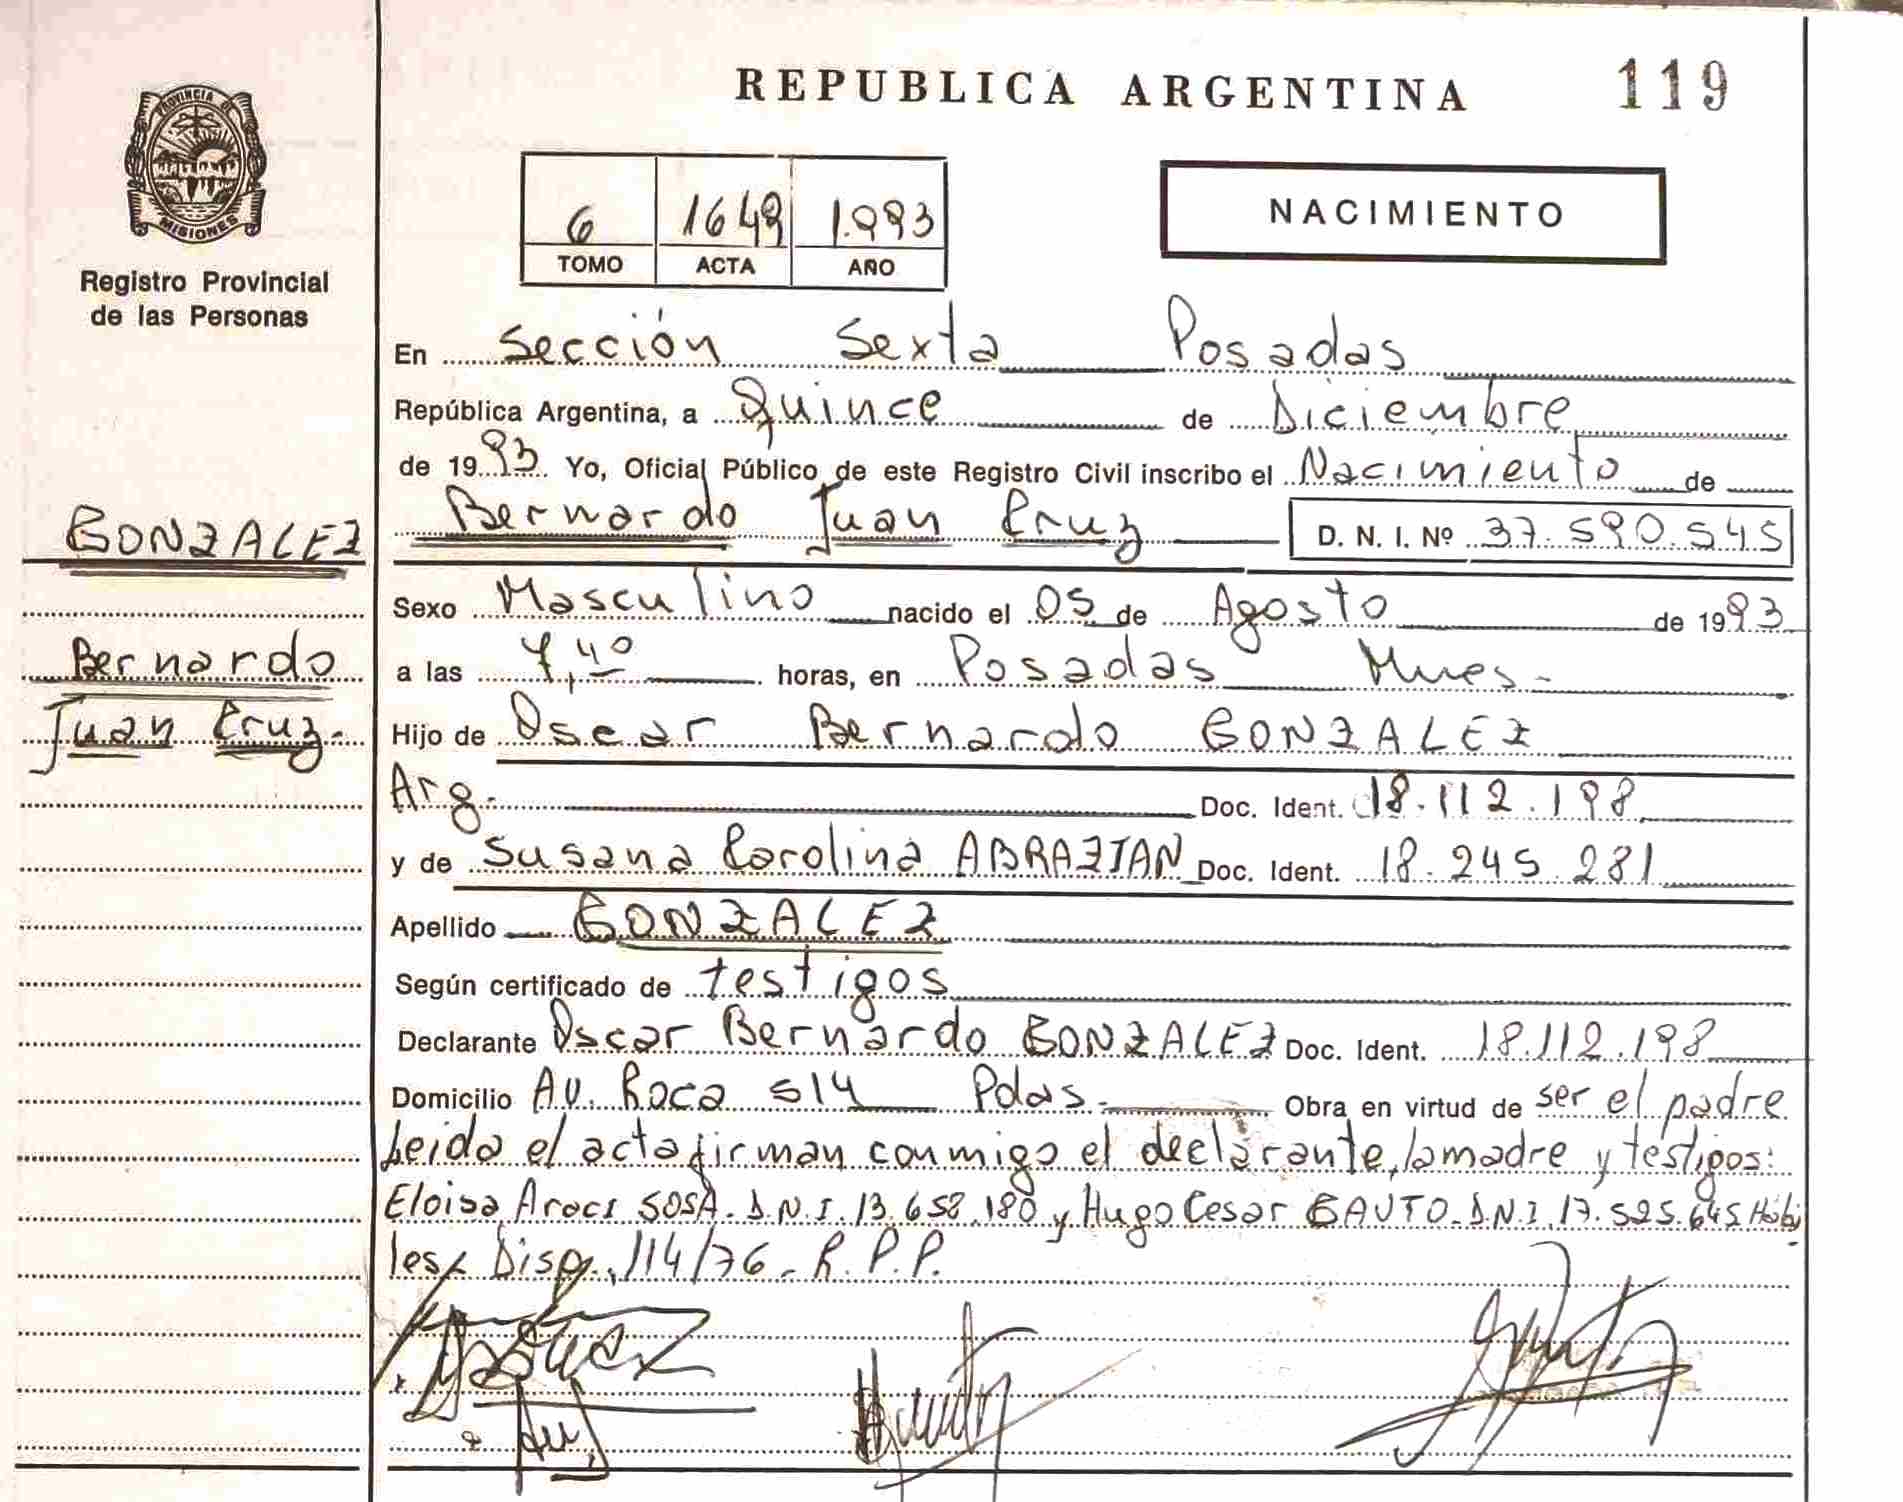 REPUBLICA ARGENTINA 119
PROVINCIA DE
MISIONES
Registro Provincial
de las Personas
6 1649 1.993
TOMO ACTA AÑO
NACIMIENTO
En Sección Sexta Posadas
República Argentina, a Quince de Diciembre
de 1993 Yo, Oficial Público de este Registro Civil inscribo el Nacimiento de
Bernardo Juan Cruz D. N. I. Nº 37.590.545
GONZALEZ
Sexo Masculino nacido el 05 de Agosto de 1993
Bernardo
Juan Cruz.-
a las 7,40 horas, en Posadas Mnes.-
Hijo de Oscar Bernardo GONZALEZ
Arg. Doc. Ident. 18.112.198
y de Susana Carolina ABRAZIAN Doc. Ident. 18.245.281
Apellido GONZALEZ
Según certificado de testigos
Declarante Oscar Bernardo GONZALEZ Doc. Ident. 18.112.198
Domicilio Av. Roca 514 Pdas.- Obra en virtud de ser el padre
Leida el acta firman conmigo el declarante, la madre y testigos:
Eloisa Araci SOSA. D.N.I. 13.658.180 y Hugo Cesar GAUTO. D.N.I. 17.525.645 Hábi
les/ Disp. 114/76 - R.P.P.